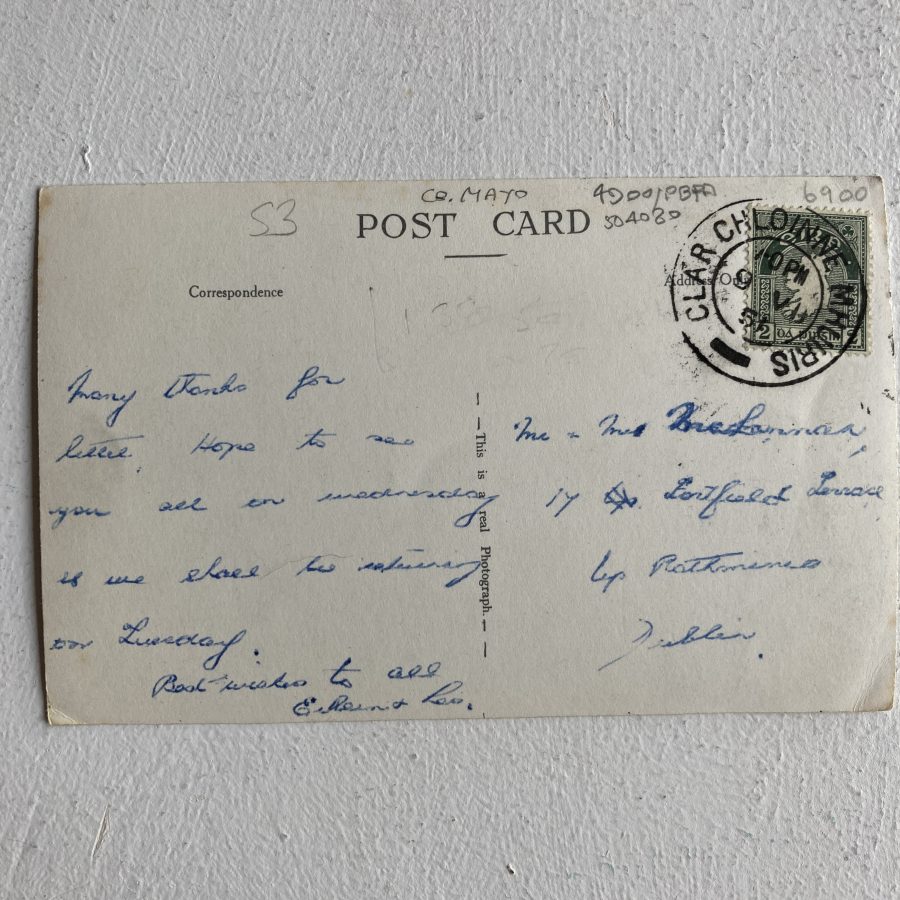 CO. MAYO
6900
53
POST CARD
504080
CLÁR CHLOINNE MHUIRIS
PM
9 VII
Correspondence
Address Only
Many thanks for
letter. Hope to see
you all on wednesday
as we shall be returning
on Tuesday.
Best wishes to all
Eileen & Leo.
— This is a real Photograph. —
Mr & Mrs
17 Portfield Terrace
Up Rathmines
Dublin.